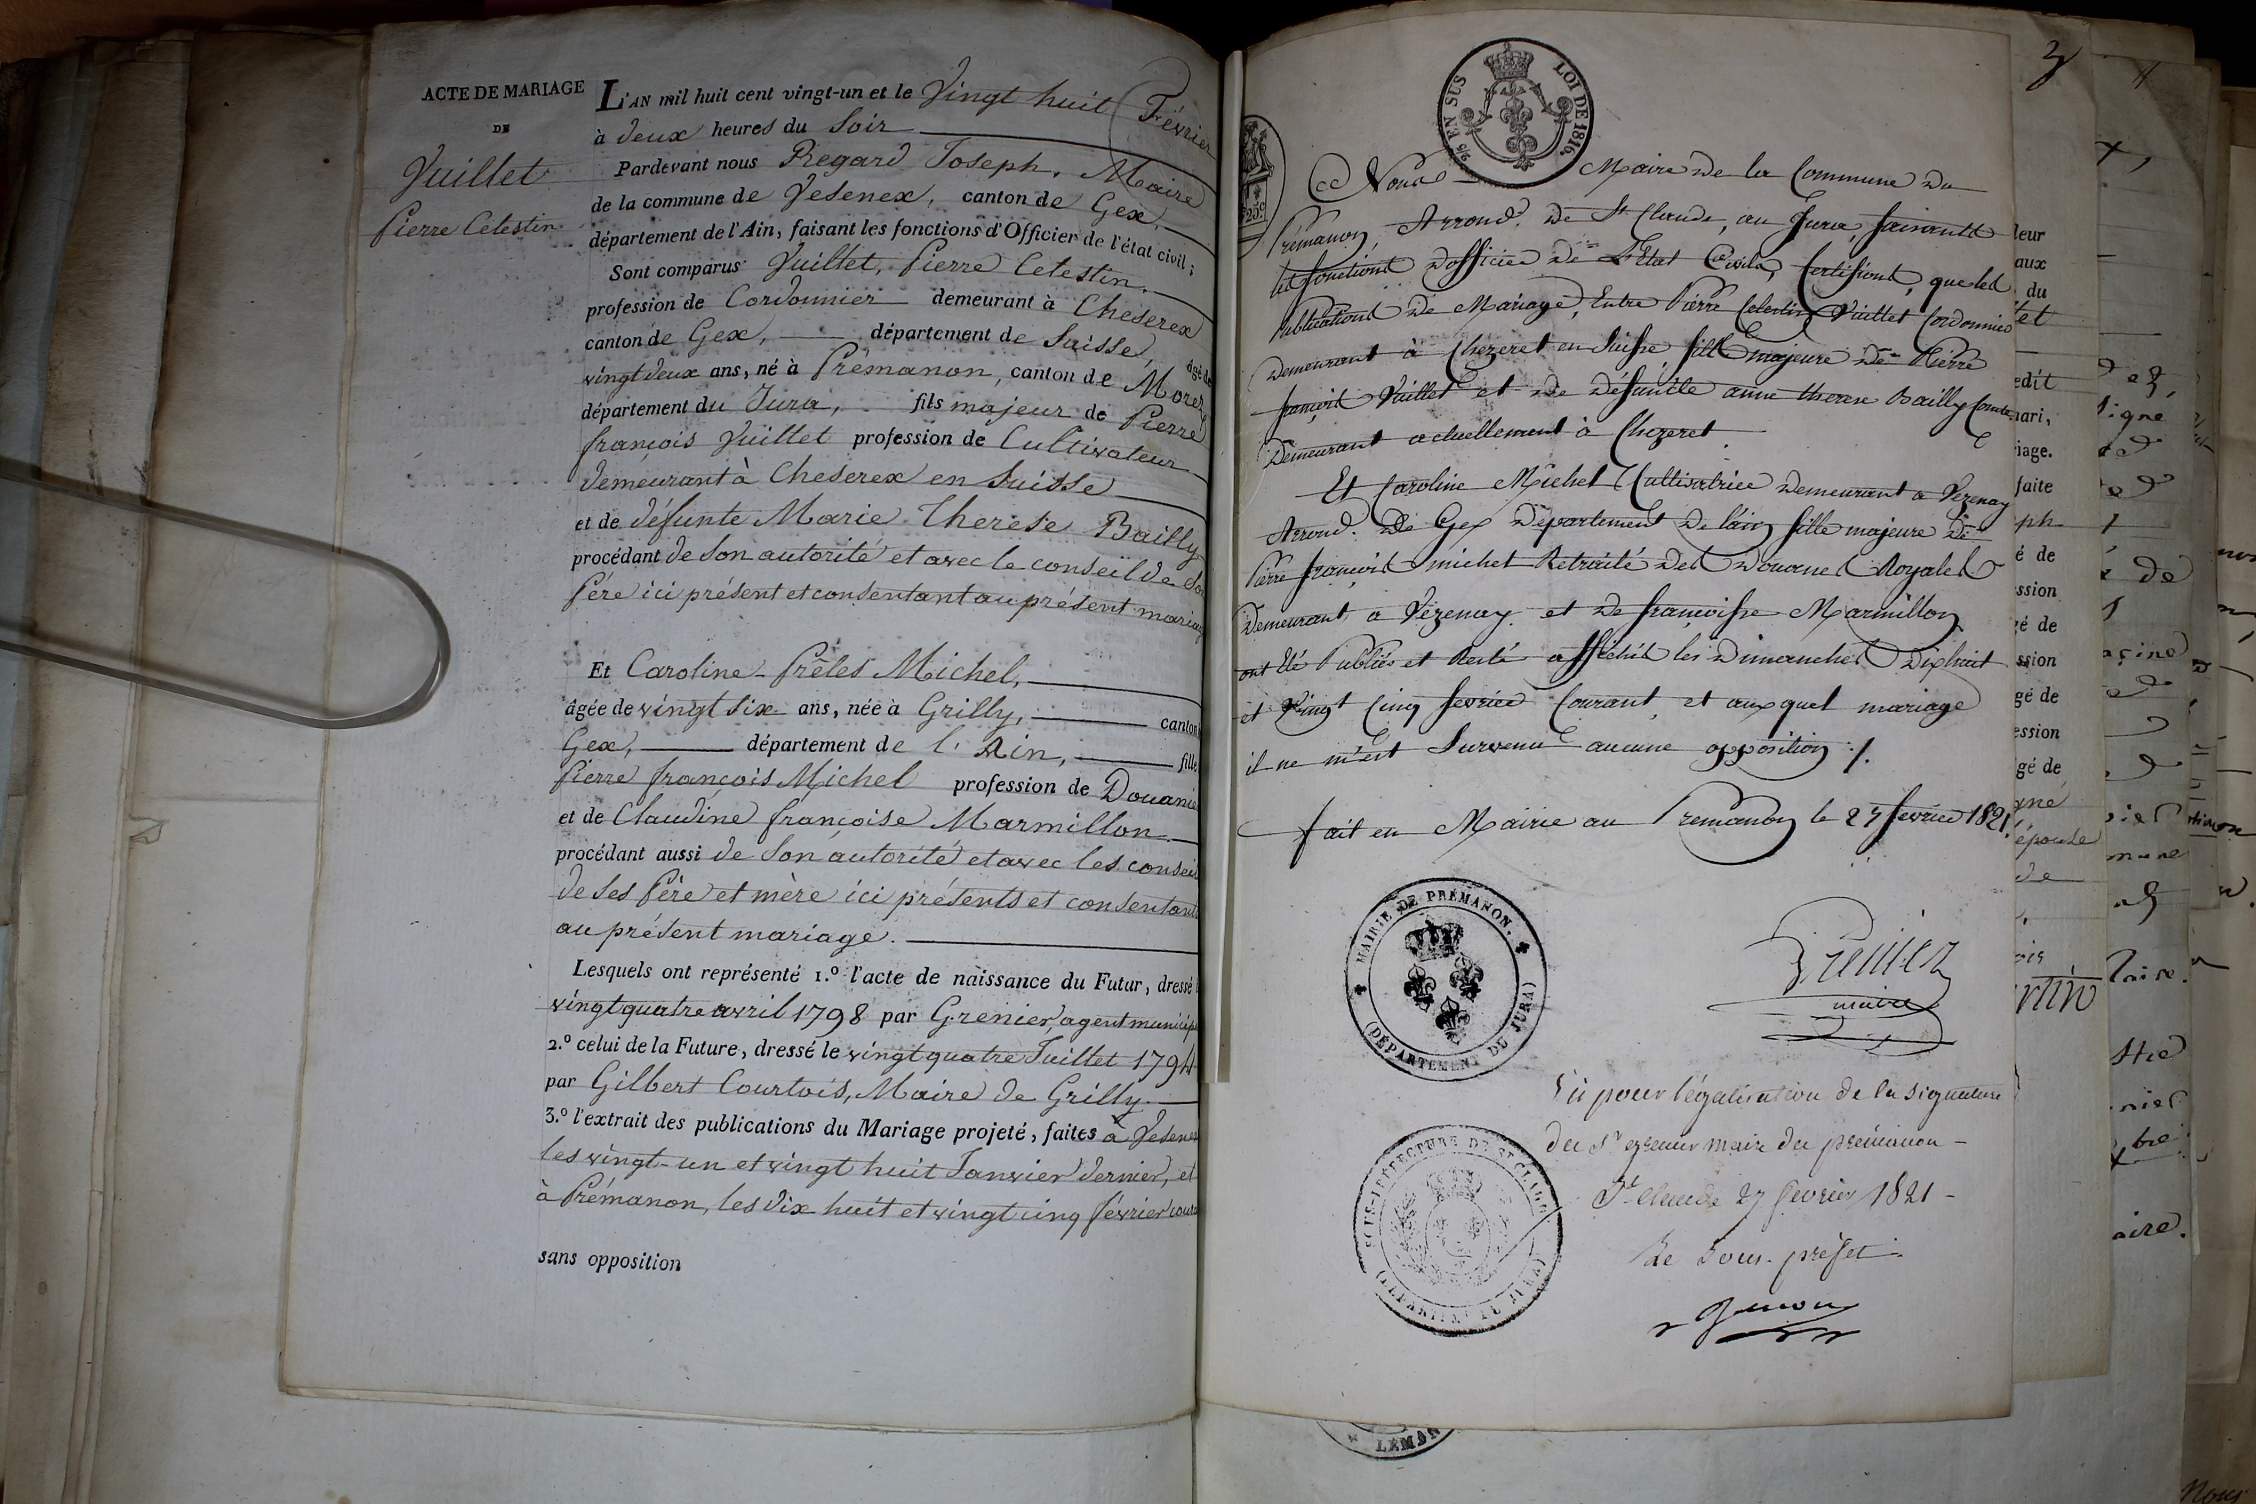 ACTE DE MARIAGE
DE
Vuillet
Pierre Celestin
L'AN mil huit cent vingt-un et le Vingt huit Février
à deux heures du Soir
Pardevant nous Regard Joseph, Maire
de la commune de Vesenex, canton de Gex,
département de l'Ain, faisant les fonctions d'Officier de l'état civil;
Sont comparus Vuillet, Pierre Celestin,
profession de Cordonnier demeurant à Cheserex
canton de Gex, département de Suisse, âgé de
vingt deux ans, né à Prémanon, canton de Morez
département du Jura, fils majeur de Pierre
françois Vuillet profession de Cultivateur
demeurant à Cheserex en Suisse
et de défunte Marie Therese Bailly
procédant de Son autorité et avec le conseil de Son
Père ici présent et consentant au présent mariag
Et Caroline Prêles Michel,
âgée de vingt six ans, née à Grilly, canton
Gex, département de l'Ain, fille
Pierre françois Michel profession de Douanie
et de Claudine françoise Marmillon
procédant aussi de Son autorité et avec les conseil
de ses Père et mère ici présents et consentant
au présent mariage.
Lesquels ont représenté 1.º l'acte de naissance du Futur, dressé
vingt quatre avril 1798 par Grenier, agent municip
2.º celui de la Future, dressé le vingt quatre Juillet 1794
par Gilbert Courtois, Maire de Grilly.
3.º l'extrait des publications du Mariage projeté, faites à Vesenex
les vingt-un et vingt huit Janvier dernier, et
à Prémanon, les dix huit et vingt cinq février coura
sans opposition
2/5 EN SUS LOI DE 1816.
25c
3
Nous Maire de la Commune de
Prémanon, Arrond. de St Claude, au Jura, faisant
les fonctions d'officier de L'Etat Civile, Certifions, que les
Publications de Mariage, Entre Pierre Celestin Vuillet Cordonnier
demeurant à Chezeret en Suisse, fils majeure de Pierre
françois Vuillet et de défunte anne therese Bailly Comte
demeurant actuellement à Chezeret.
Et Caroline Michel Cultivatrice demeurant a Vezenay
Arrond. De Gex Département De l'ain fille majeure de
Pierre françois michel Retraité des Douanes Royales
Demeurant a Vézenay et de françoise Marmillon
ont Été Publiés et Resté affichés les Dimanches Dixhuit
et Vingt Cinq fevrier Courant, et auxquel mariage
il ne m'est Survenu aucune opposition ./.
fait en Mairie au Premanon le 27 fevrier 1821.
MAIRIE DE PRÉMANON.
(DÉPARTEMENT DU JURA)
Grenier
maire
Vu pour légalisation de la signature
du Sr grenier maire de prémanon
St Claude 27 fevrier 1821
Le Sous-préfet
SOUS-PRÉFECTURE DE ST CLAUDE
(DÉPARTEMT DU JURA)
leur
aux
du
et
edit
mari,
iage.
faite
ph
é de
ession
gé de
ession
gé de
ession
gé de
gné
épouse
de
signe
de
mune
Maire.
aire.
LEMAN
Nous